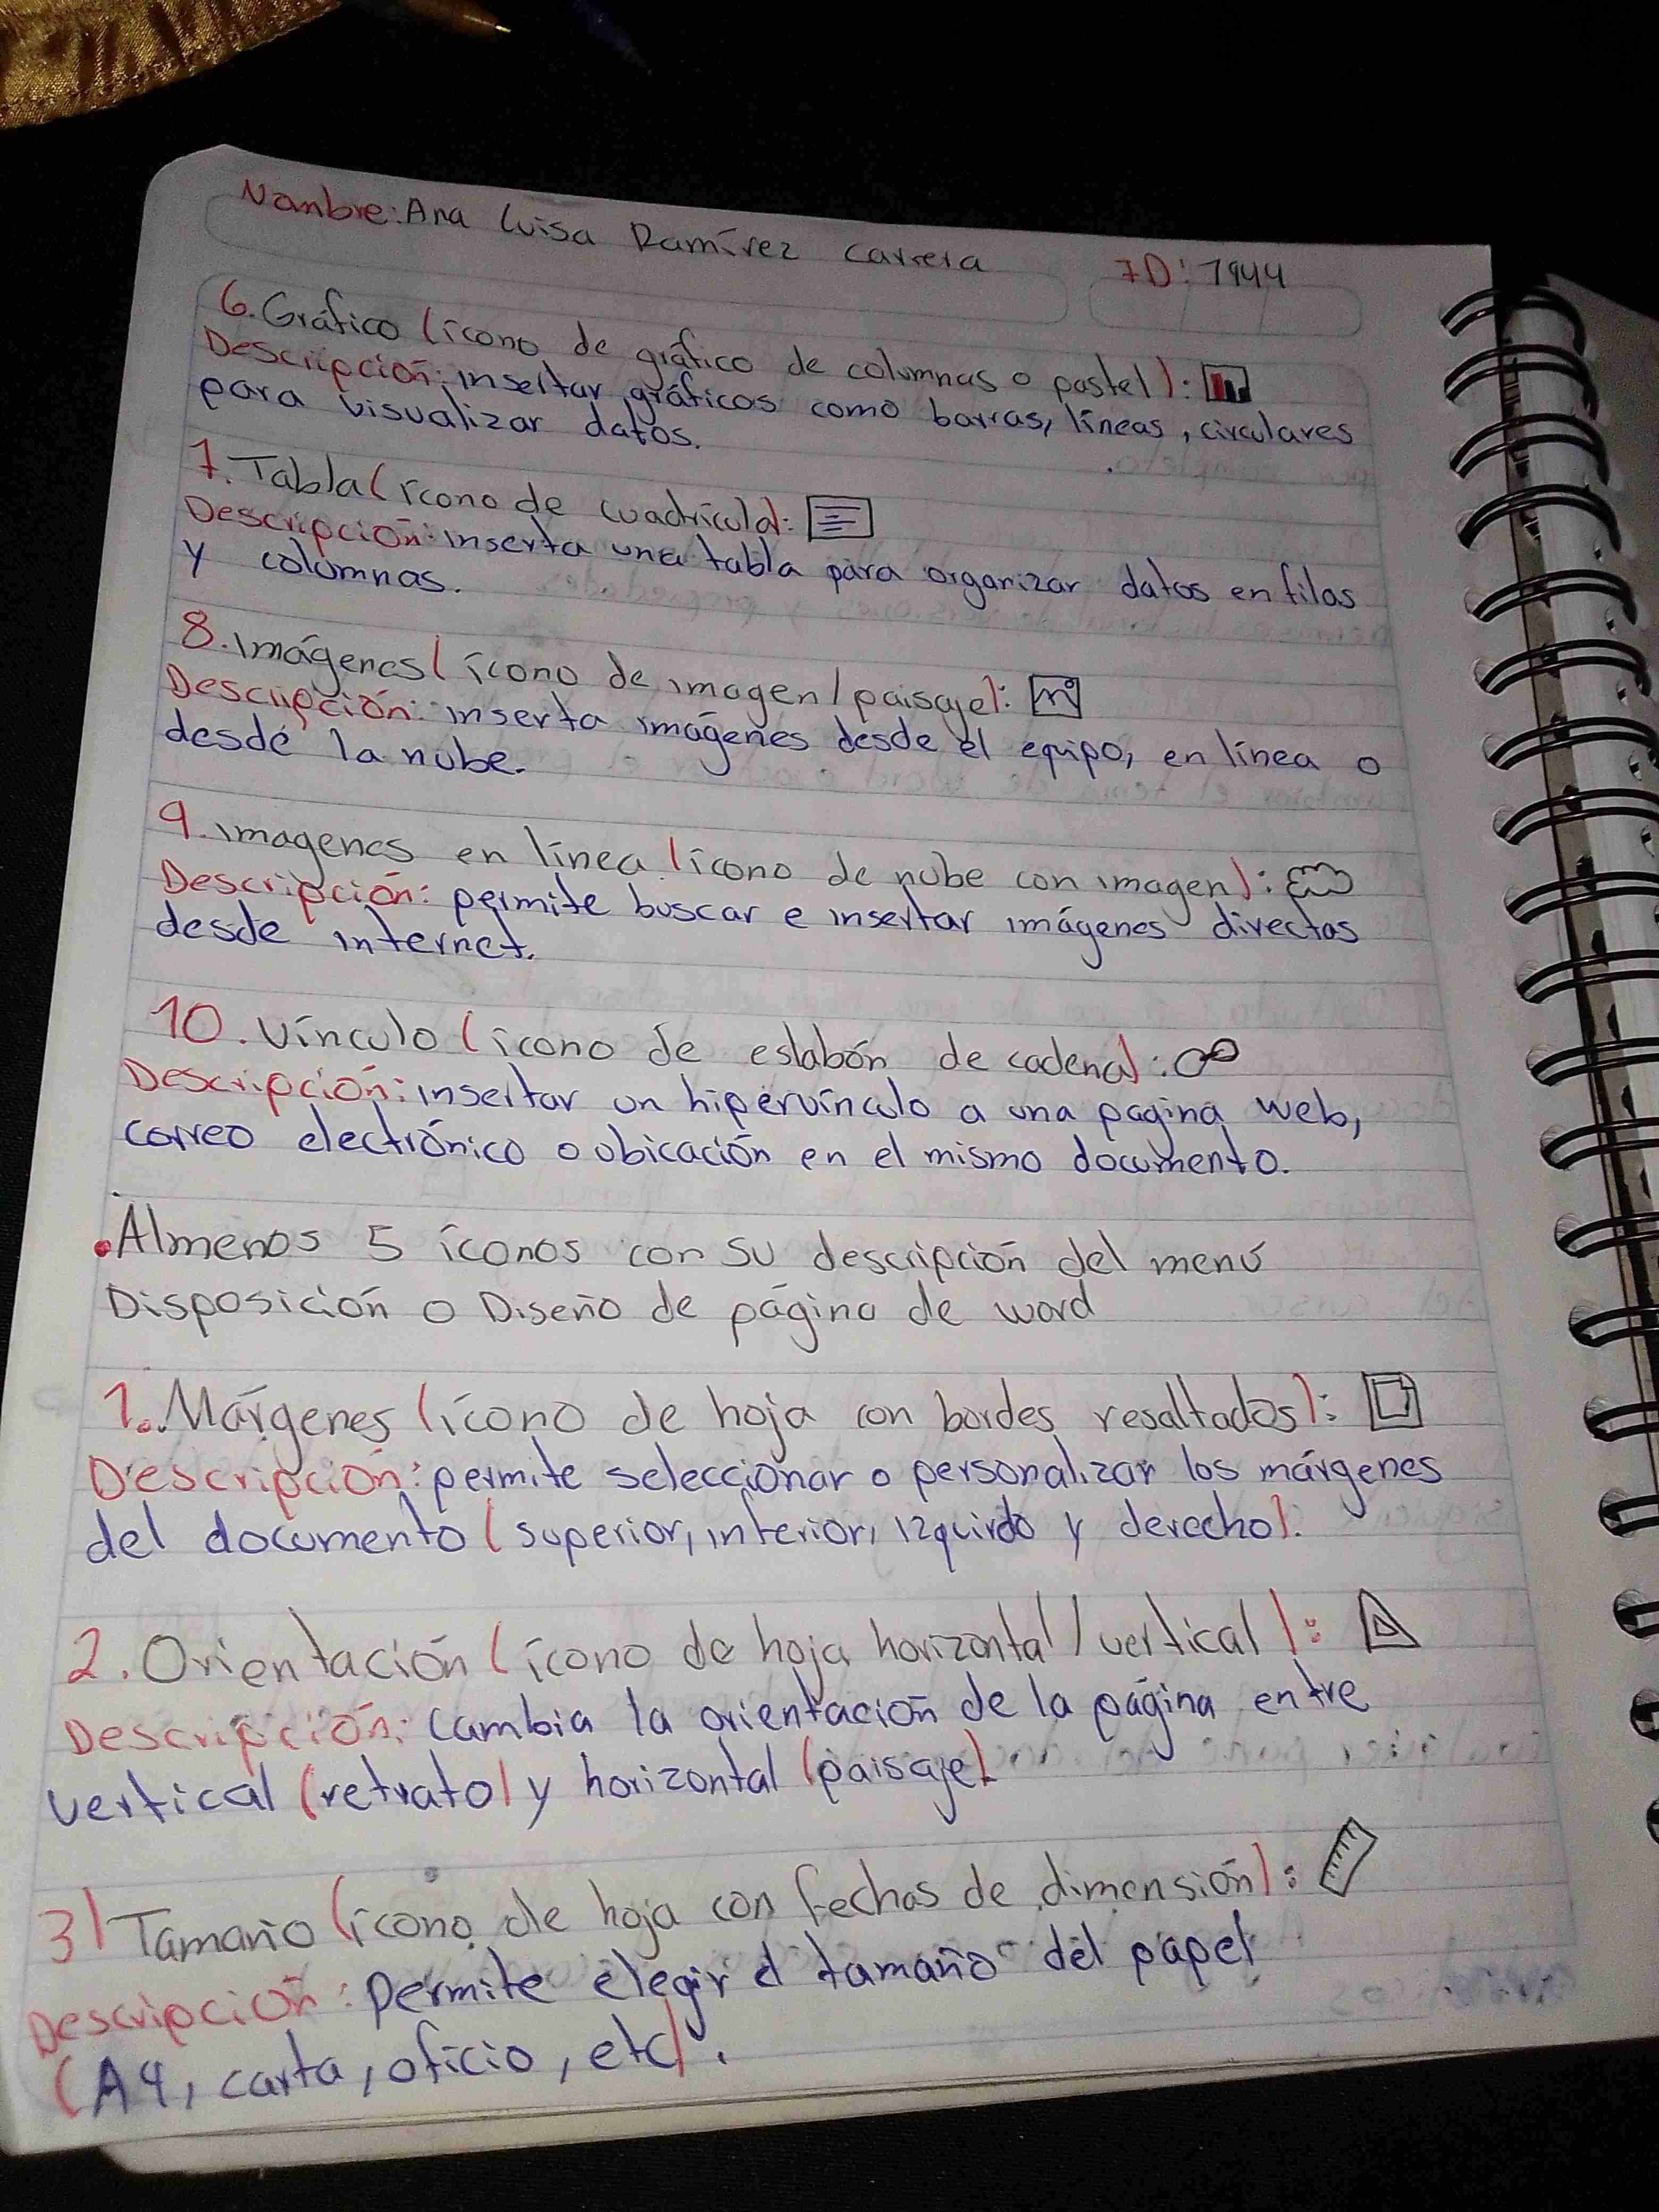 Nombre: Ana Luisa Ramírez Carrera ID: 1944
6. Gráfico (ícono de gráfico de columnas o pastel):
Descripción: insertar gráficos como barras, líneas, circulares
para visualizar datos.
7. Tabla (ícono de cuadrícula):
Descripción: inserta una tabla para organizar datos en filas
y columnas.
8. Imágenes (ícono de imagen/paisaje):
Descripción: inserta imágenes desde el equipo, en línea o
desde la nube.
9. imagenes en línea (ícono de nube con imagen):
Descripción: permite buscar e insertar imágenes directas
desde internet.
10. Vínculo (icono de eslabón de cadena):
Descripción: insertar un hipervínculo a una pagina web,
correo electrónico o ubicación en el mismo documento.
• Almenos 5 íconos con su descripción del menú
Disposición o Diseño de página de word
1. Márgenes (ícono de hoja con bordes resaltados):
Descripción: permite seleccionar o personalizar los márgenes
del documento (superior, inferior, izquirdo y derecho).
2. Orientación (ícono de hoja horizontal/vertical):
Descripción: cambia la orientación de la página entre
vertical (retrato) y horizontal (paisaje)
3) Tamaño (ícono de hoja con fechas de dimensión):
Descripción: permite elegir el tamaño del papel
(A4, carta, oficio, etc).